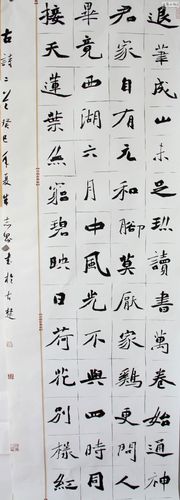 退筆成山未足珎讀書萬卷始通神
君家自有元和脚莫厭家鷄更問人
畢竟西湖六月中風光不與四時同
接天蓮葉無窮碧映日荷花別樣紅
古詩二首癸巳年夏志書於古楚